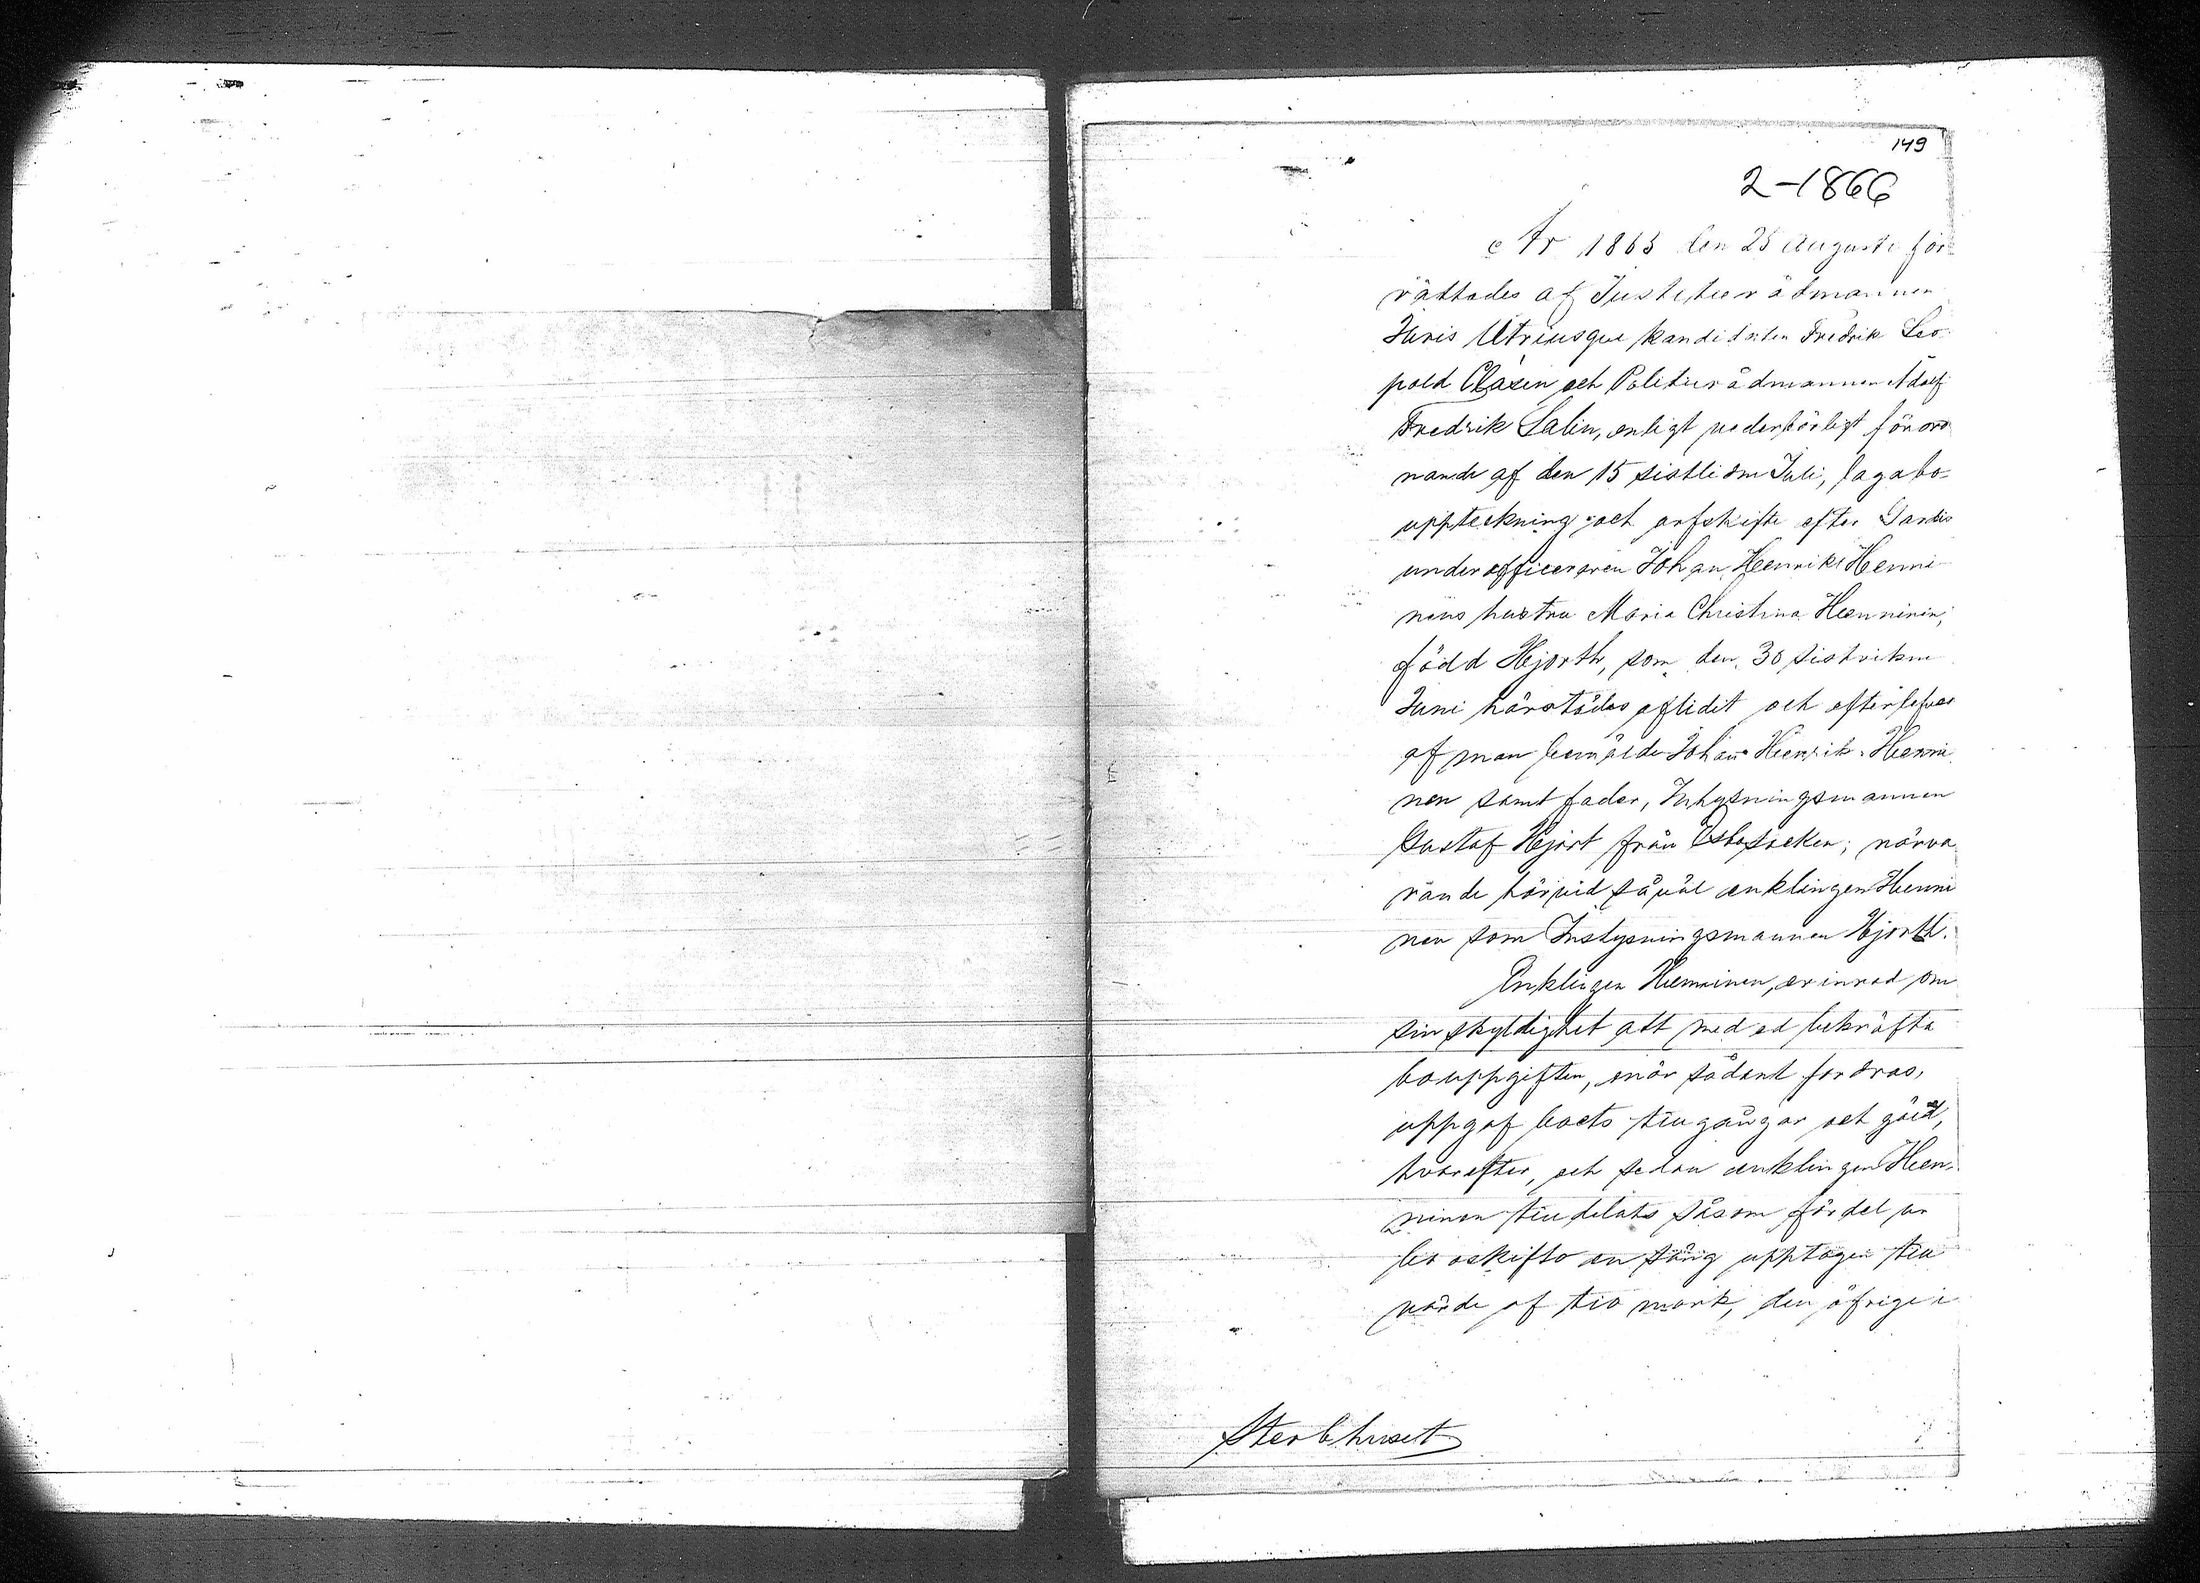 149
2-1866
År 1865 den 25 Augusti för-
rättades af Justitierådmannen
Juris Utriusque kandidaten Fredrik Leo-
pold Clasén och Politierådmannen Adolf
Fredrik Salin, enligt vederbörligt förord-
nande af den 15 sistlidne Juli, laga bo-
uppteckning och arfskifte efter Gardis
underofficeraren Johan Henrik Henni-
nens hustru Maria Christina Henninen,
född Hjorth, som den 30 sistvikne
Juni härstädes aflidit och efterlefves
af man bemälde Johan Henrik Henni-
nen samt fader, Inhysningsmannen
Gustaf Hjort från Esbo socken; närva-
rande härvid såväl enklingen Henni
nen som Inhysningsmannen Hjorth.
Enklingen Henninen, erinrad om
sin skyldighet att med ed bekräfta
bouppgiften, när sådant fordras,
uppgaf boets tillgångar och gäld,
hvarefter, och sedan enklingen Hen-
ninen tilldelats såsom fördel ur
bo oskifto en säng upptagen till
värde af tio mark, den öfriga
Sterbhuset